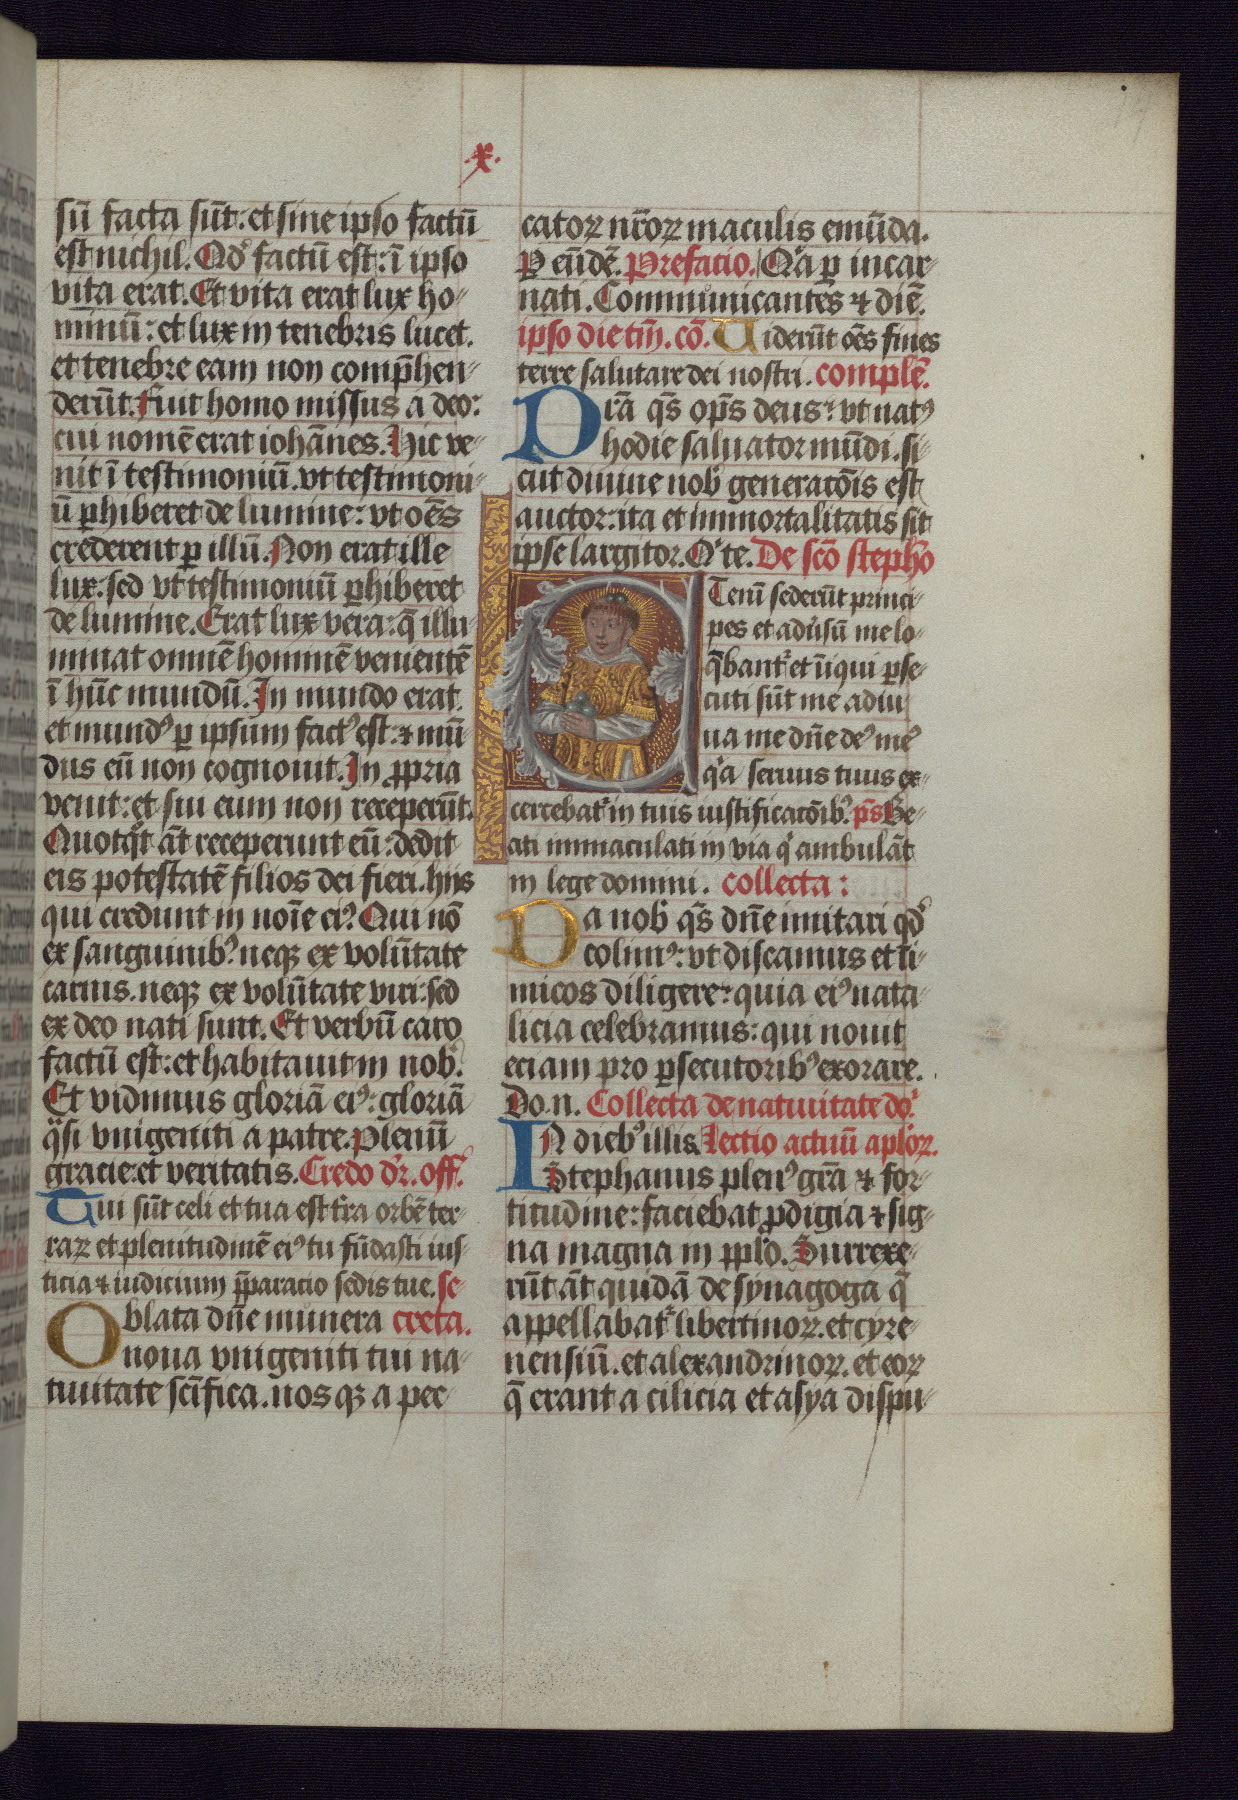 .x.
sū facta sūt: et sine ipso factū
est nichil. Qd' factū est: ī ipso
vita erat. Et vita erat lux ho-
minū: et lux in tenebris lucet.
et tenebre eam non comp̄hen-
derūt. Fuit homo missus a deo:
cui nomē erat iohānes. Hic ve-
nit ī testimoniū. vt testimoni-
ū ꝑhiberet de lumine: vt oēs
crederent ꝑ illū. Non erat ille
lux: sed vt testimoniū ꝑhiberet
de lumine. Erat lux vera: q̄ illu-
minat omnē hominē venientē
ī hūc mundū. In mundo erat.
et mundꝰ ꝑ ipsum factꝰ est: ⁊ mū
dus eū non cognouit. In ꝓpria
venit: et sui eum non receperūt.
Quotqͦt āt receperunt eū: dedit
eis potestatē filios dei fieri. hijs
qui credunt in noīe eiꝰ. Qui nō
ex sanguinibꝰ. neqꝫ ex volūtate
carnis. neqꝫ ex volūtate viri: sed
ex deo nati sunt. Et verbū caro
factū est: et habitauit in nob'.
Et vidimus gloriā eiꝰ: gloriā
qͣsi vnigeniti a patre. plenū
gracie: et veritatis. Credo dr̄. off'.
Tui sūt celi et tua est t'ra orbē ter-
raꝝ et plenitudinē eiꝰ tu fūdasti ius-
ticia ⁊ iudicium p̄paracio sedis tue. se-
Oblata dn̄e munera creta.
noua vnigeniti tui na-
tiuitate sc̄ifica. nos qꝫ a pec-
catoꝝ nr̄oꝝ maculis emūda.
P eūdē. Prefacio. Qͥa ꝑ incar-
nati. Communicantes ⁊ diē.
ipso die tm̄. cō. Uiderūt oēs fines
terre salutare dei nostri. complē.
Pr̄a qs̄ op̄s deus: vt natꝰ
hodie saluator mūdi. si-
cut diuine nob' generatōis est
auctor: ita et immortalitatis sit
ipse largitor. Qͥ te. De sc̄o steph̄o
Etenī sederūt princi-
pes et adu'sū me lo-
q̄bant' et īiqui ꝑse-
cuti sūt me adiu
ua me dn̄e deꝰ meꝰ
qͥa seruus tuus ex-
ercebat' in tuis iustificatōibꝰ. ps̄ Be-
ati immaculati in via qͥ ambulāt
in lege domini. collecta:
Da nob' qs̄ dn̄e imitari qd'
colimꝰ: vt discamus et ī-
micos diligere: quia eiꝰ nata-
licia celebramus: qui nouit
eciam pro ꝑsecutoribꝰ exorare.
Do. n. Collecta de natiuitate do'.
In diebꝰ illis. Lectio actuū apl'oꝝ.
Stephanus plenꝰ gr̄a ⁊ for-
titudine: faciebat ꝓdigia ⁊ sig-
na magna in ppl'o. Surrexe-
rūt āt quidā de synagoga q̄
appellabat' libertinoꝝ. et cyre-
nensiū. et alexandrinoꝝ. et eoꝝ
q̄ erant a cilicia et asya dispu-